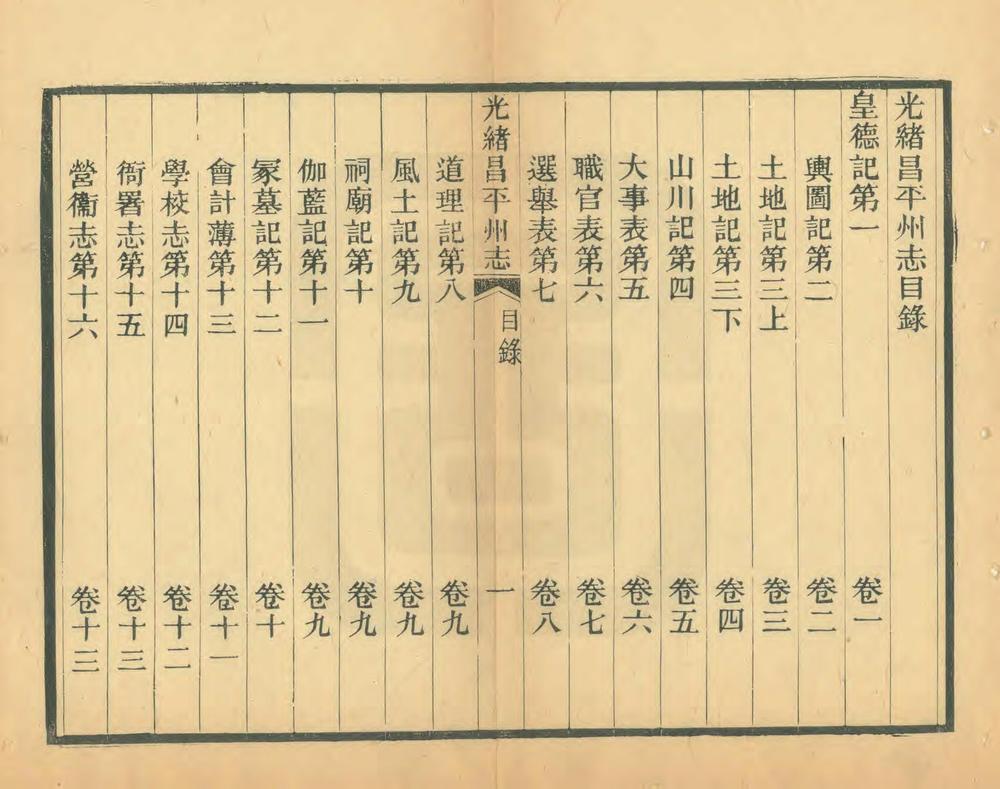 光緒昌平州志目錄
皇德記第一 卷一
輿圖記第二 卷二
土地記第三上 卷三
土地記第三下 卷四
山川記第四 卷五
大事表第五 卷六
職官表第六 卷七
選舉表第七 卷八
光緒昌平州志 目錄 一
道理記第八 卷九
風土記第九 卷九
祠廟記第十 卷九
伽藍記第十一 卷九
冢墓記第十二 卷十
會計薄第十三 卷十一
學校志第十四 卷十二
衙署志第十五 卷十三
營衞志第十六 卷十三